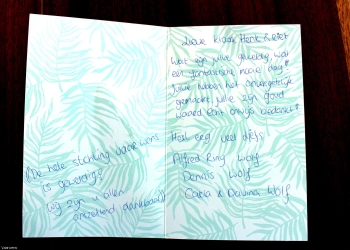 De hele stichting ...wens
is geweldig!
Wij zijn u allen
ontzettend dankbaar!!
Lieve Klaas, Henk &
Wat zijn jullie geweldig, wat
een fantastische mooie dag!!
Jullie hebben het onvergetelijk
gemaakt, jullie zijn goud
waard echt onwijs bedankt!!
Heel erg veel liefs
Alfred Ring Wolf
Dennis Wolf
Carla & Davina Wolf